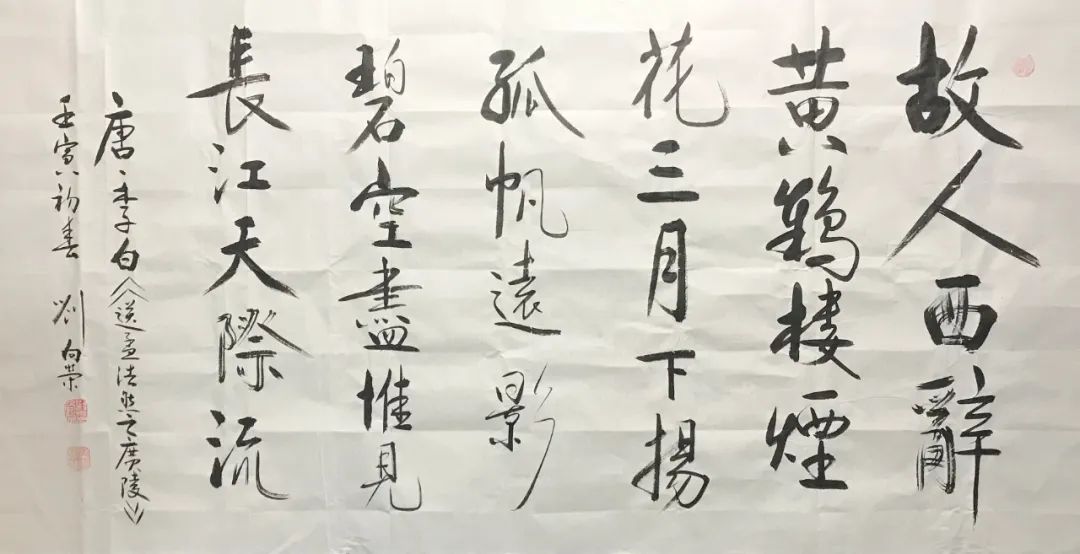 故人西辭
黄鶴樓煙
花三月下揚
孤帆遠影
碧空盡惟見
長江天際流
唐、李白《送孟浩然之廣陵》
壬寅初春 劉向荣